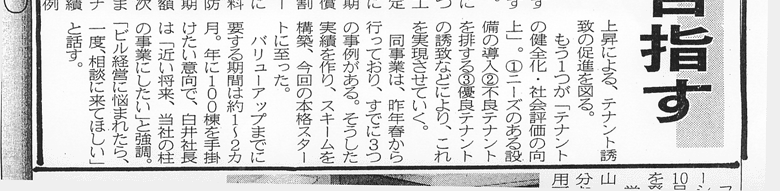 目指す
上昇による、テナント誘
致の促進を図る。
もう1つが「テナント
の健全化・社会評価の向
上」。①ニーズのある設
備の導入②不良テナント
を排する③優良テナント
の誘致などにより、これ
を実現させていく。
同事業は、昨年春から
行っており、すでに3つ
の事例がある。そうした
実績を作り、スキームを
構築、今回の本格スター
トに至った。
バリューアップまでに
要する期間は約1～2カ
月。年に100棟を手掛
けたい意向で、白井社長
は「近い将来、当社の柱
の事業にしたい」と強調。
「ビル経営に悩まれたら、
一度、相談に来てほしい」
と話す。